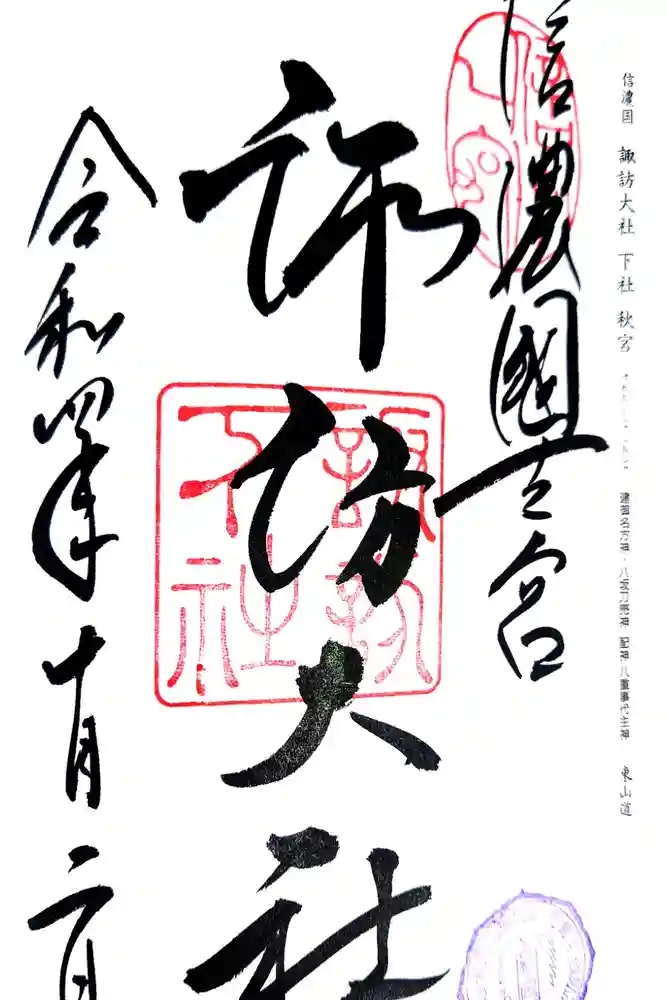 信濃国 諏訪大社 下社 秋宮
建御名方神・八坂刀売神 配神 八重事代主神 東山道
信濃國一之宮
諏訪大社
諏訪
下社
令和四年十月二日